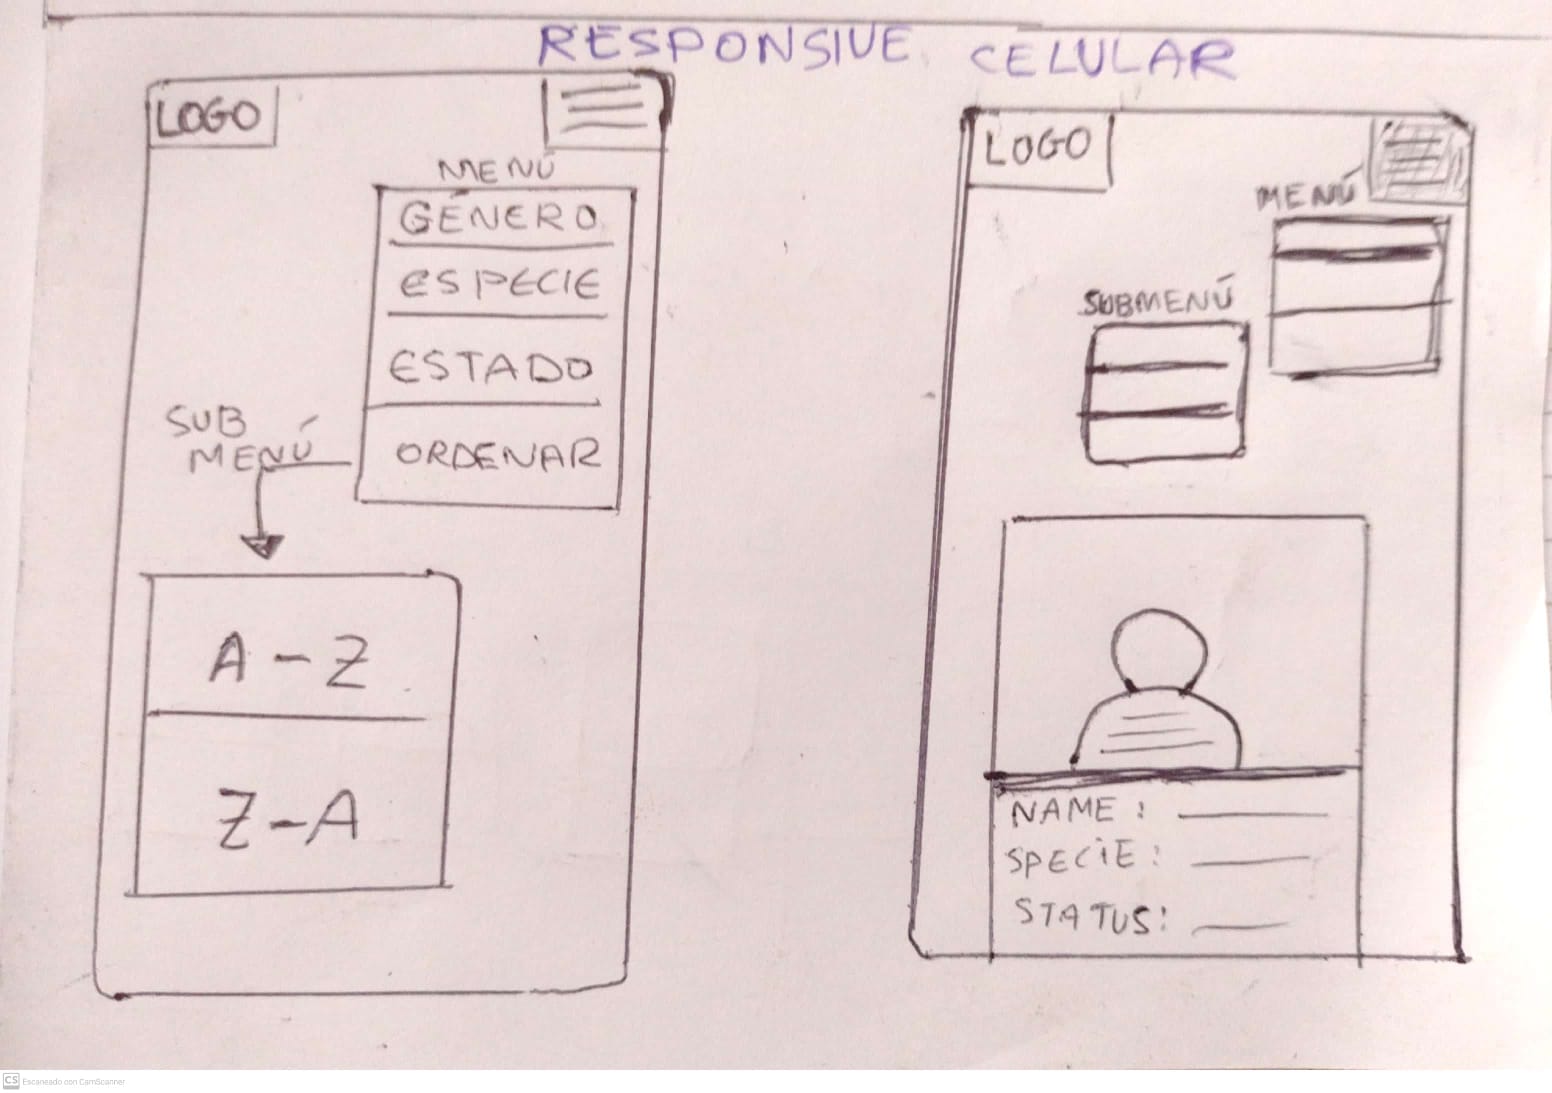 RESPONSIVE CELULAR
LOGO
MENÚ
GÉNERO
ESPECIE
ESTADO
ORDENAR
SUB
MENÚ
A-Z
Z-A
LOGO
MENÚ
SUBMENÚ
NAME:
SPECIE:
STATUS:
CS Escaneado con CamScanner